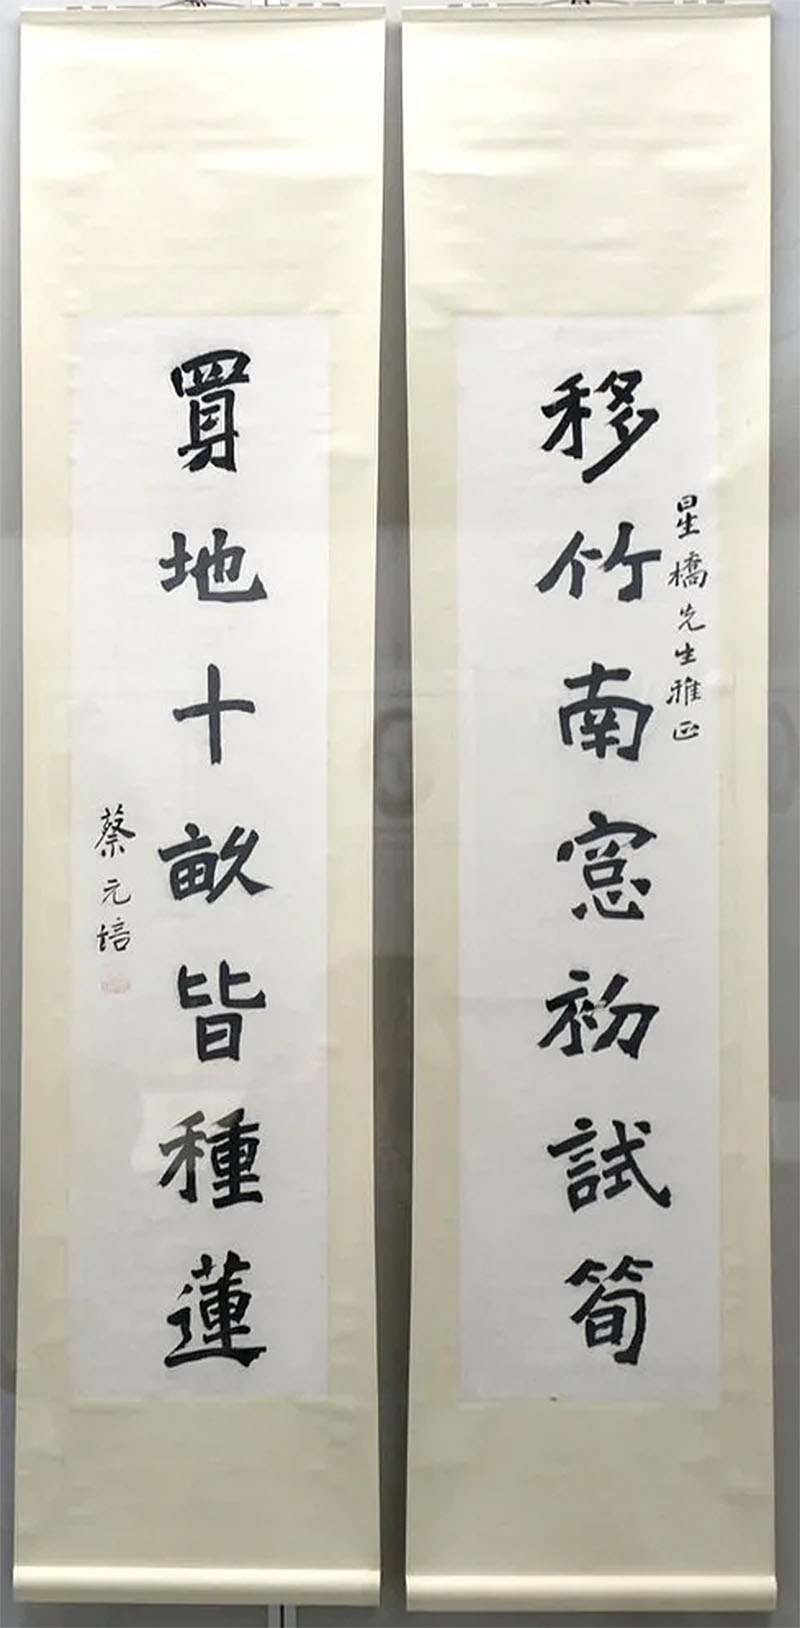 星橋先生雅正
移竹南窓初試筍
買地十畝皆種蓮
蔡元培